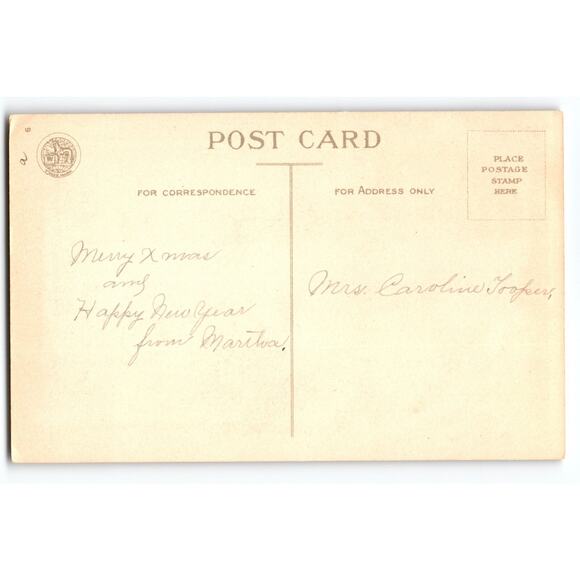 6
a
POST CARD
PLACE
POSTAGE
STAMP
HERE
FOR CORRESPONDENCE
FOR ADDRESS ONLY
Merry Xmas
and
Happy New Year
from Martha.
Mrs. Caroline